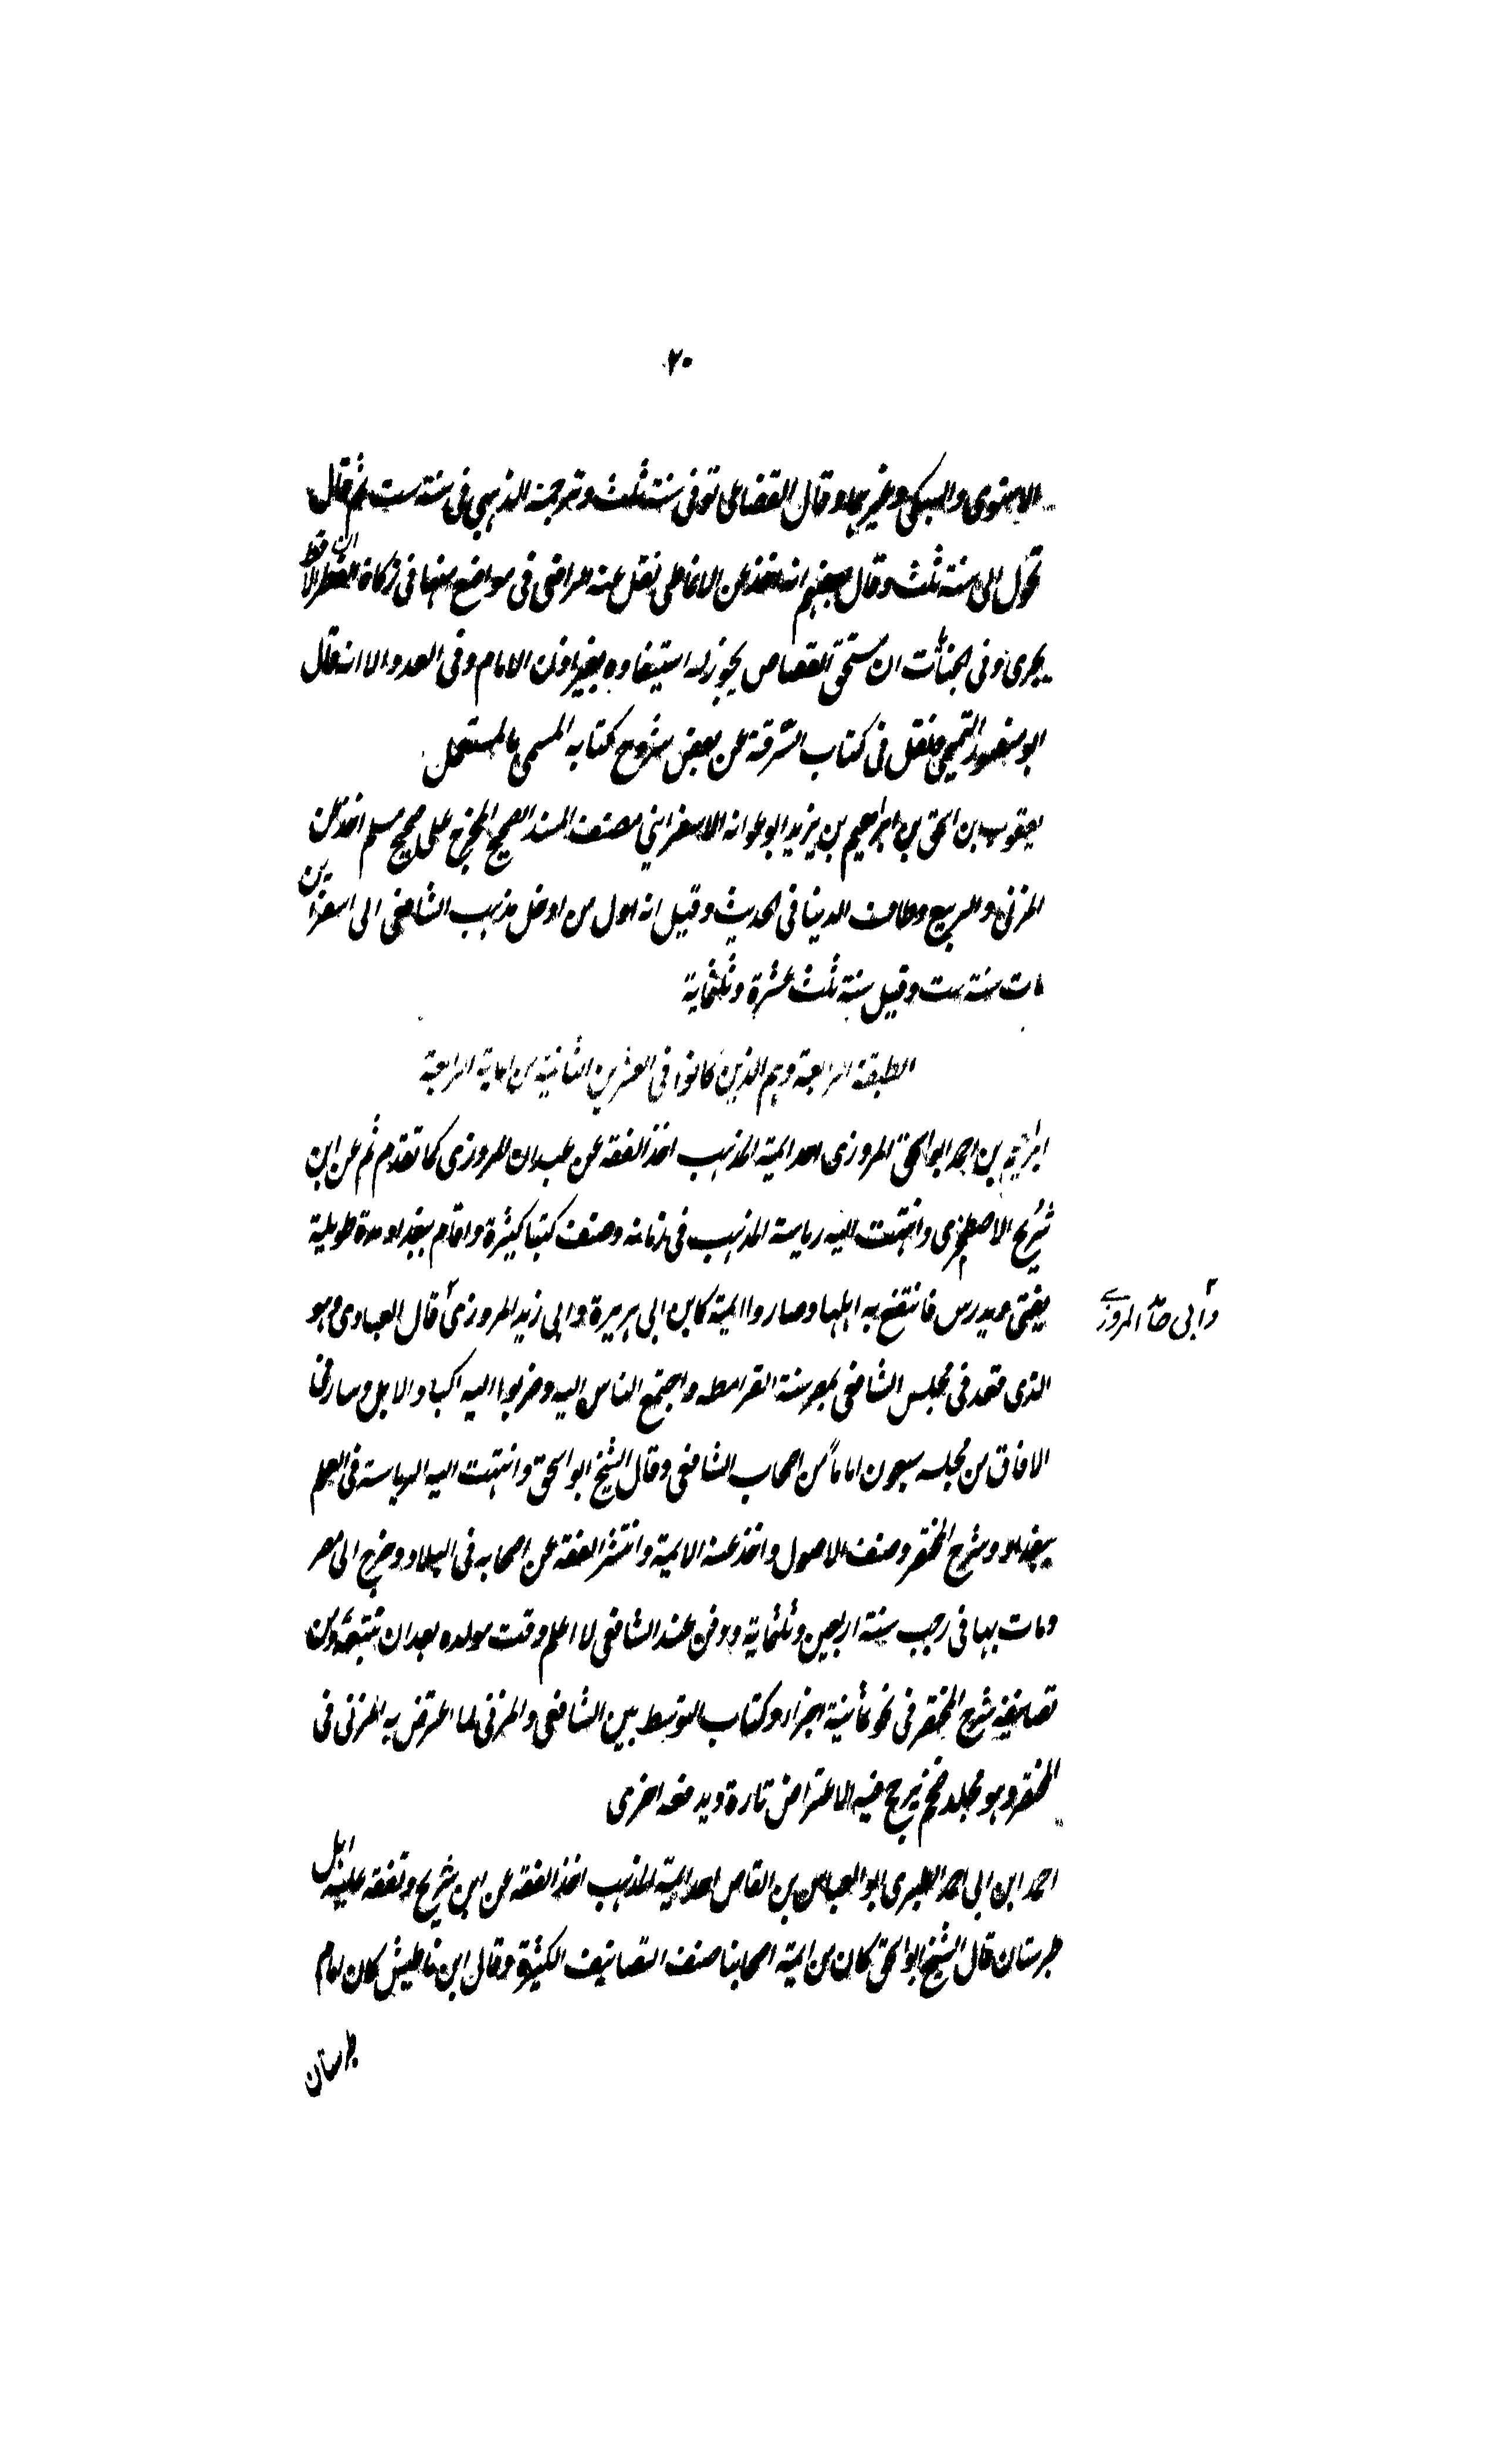 ٢٠
الاسنوى والسبكى وغيرهما وقال القضاعى توفى سنة ثلث وترجمه الذهبى فى سنة ست ثم قال
تحول الى سنة ثلث وقال بعضهم انه اخذ عن الانماطى نقل عنه الرافعى فى مواضع منها فى زكاة الفطر ان الاقط لا
يجرى وفى الجنايات ان مستحق القصاص يجوز له استيفاوه بغير اذن الامام وفى العدد الا انه قال
ابو منصور التميمى فنقل فى كتاب السرقة عن بعض شروح كتابه المسمى بالمستعمل
يعقوب بن اسحق بن ابراهيم بن يزيد ابو عوانه الاسفراينى مصنف المسند الصحيح المخرج على صحيح مسلم اخذ عن
المزنى والربيع وطاف الدينا فى الحديث وقيل انه اول من ادخل مذهب الشافعى الى اسفراين
مات سنة ست وقيل سنة ثلث عشرة وثلثماية
الطبقة الرابعة وهم الذين كانوا فى العشرين الثانية من الماية الرابعة
ابراهيم بن احمد ابو اسحق المروزى احد ايمة المذهب اخذ الفقه عن عبدان المروزى كما تقدم ثم عن ابن
شريح الاصطخرى وانتهت اليه رياسة المذهب فى زمانه وصنف كتبا كثيرة واقام ببغداد مدة طويلة
يفتى ويدرس فانتفع به اهلها وصاروا ايمة كابن ابى هريرة وابى زيد المروزى قال العبادى وهو
وأبى حامد المروزى
الذى قعد فى مجلس الشافعى بمصر سنة القرامطه واجتمع الناس اليه وضربوا اليه اكباد الابل وسار فى
الافاق من مجلسه سبعون اماما من اصحاب الشافعى وقال الشيخ ابو اسحق وانتهت اليه الرياسة فى العلم
ببغداد وشرح المختصر وصنف الاصول واخذ عنه الايمة وانتشر الفقه عن اصحابه فى البلاد وخرج الى مصر
ومات بها فى رجب سنة اربعين وثلثماية ودفن عند الشافعى لا اعلم وقت مولده بعد ان تتبعته ومن
تصانيفه شرح المختصر فى نحو ثمانية اجزاء وكتاب التوسط بين الشافعى والمزنى لما اعترض به المزنى فى
المختصر وهو مجلد ضخم يرجح فيه الاعتراض تارة ويدفعه اخرى
احمد ابن ابى احمد الطبرى ابو العباس بن القاص احد ايمة المذهب اخذ الفقه عن ابن شريح وتفقه عليه اهل
طبرستان قال الشيخ ابو اسحق كان من ايمة اصحابنا صنف التصانيف الكثيرة وقال ابن باطيش كان امام
طبرستان